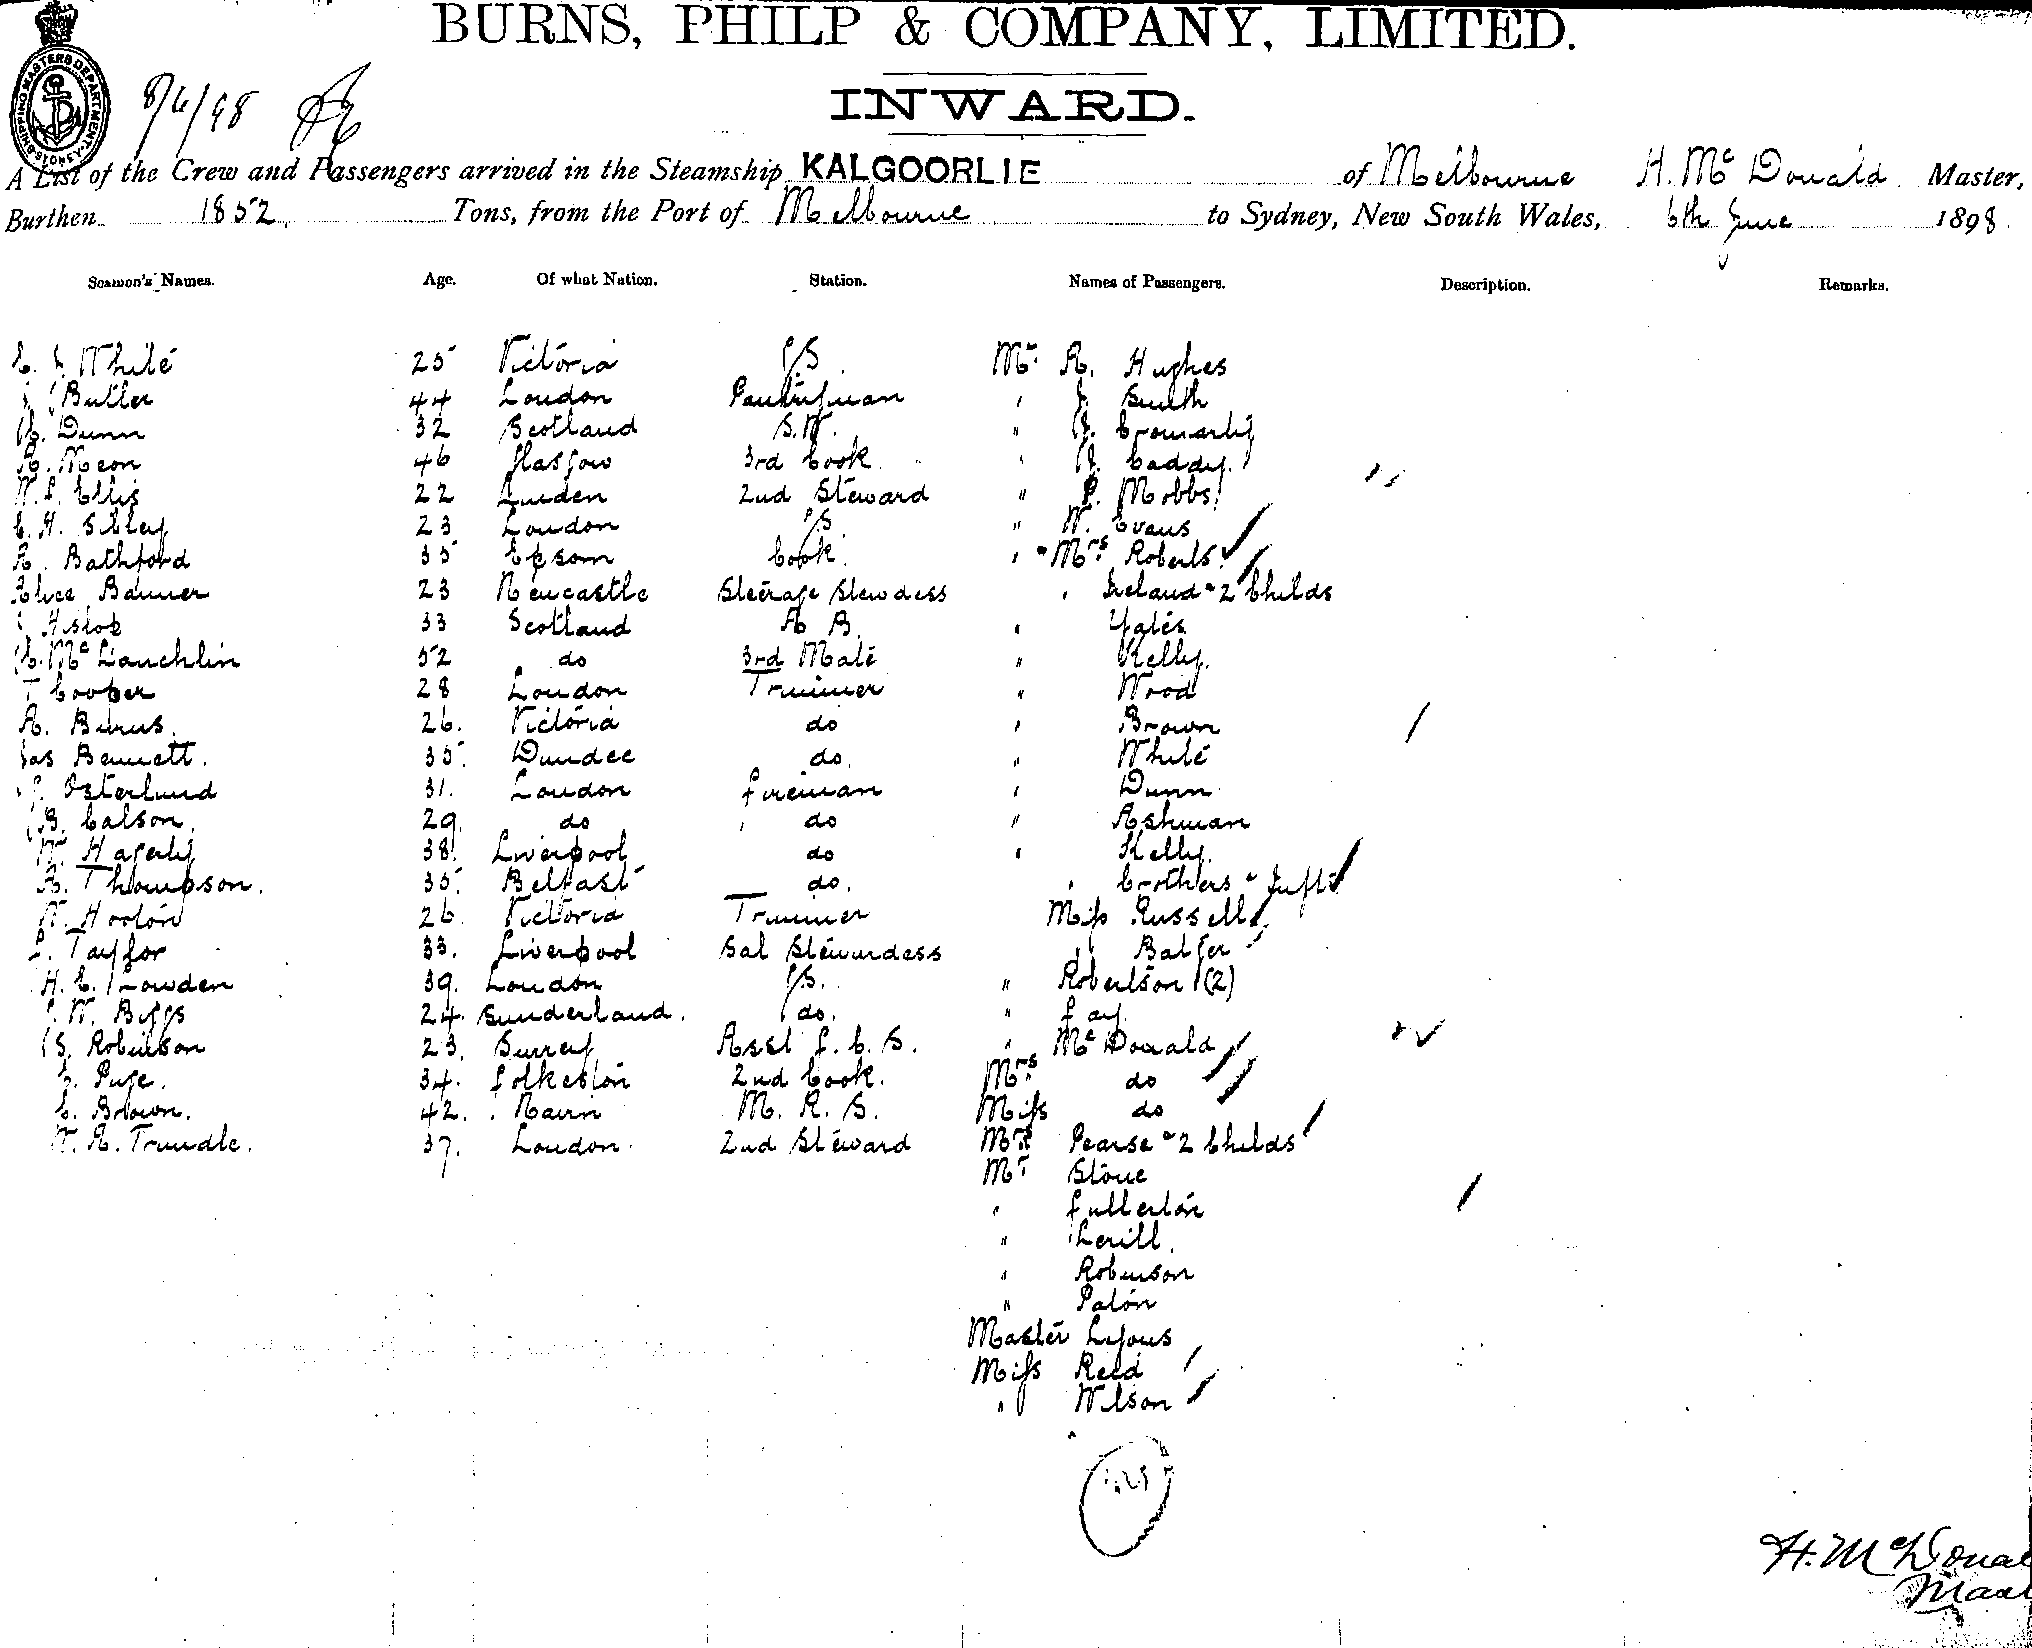 BURNS, PHILP & COMPANY, LIMITED.
INWARD.
SHIPPING MASTERS DEPARTMENT SYDNEY
8/6/98
A List of the Crew and Passengers arrived in the Steamship KALGOORLIE of Melbourne H. Mc Donald Master,
Burthen 1852 Tons, from the Port of Melbourne to Sydney, New South Wales, 6th June 1898
Seamen's Names. Age. Of what Nation. Station. Names of Passengers. Description. Remarks.
White 25 Victoria Mr. A. Hughes
Butler 44 London Pantryman " J. Smith
Dunn 32 Scotland " Cromarty
A. 46 Glasgow 3rd Cook " Caddy.
Ellis 22 2nd Steward " P. Mobbs
C. H. Sibley 23 London " W. Evans
A. Bathford 35 Epsom Cook. " Mrs. Roberts
Alice Banner 23 Newcastle Steerage Stewdess " Ireland & 2 Childs
Hislop 33 Scotland A B. " Yates
Mc Lauchlin 52 do 3rd Mate " Kelly.
T Cooper 28 London Trimmer " Wood
A. Burns. 26. Victoria do " Brown
Jas Bennett. 35. Dundee do. " White
Osterlund 31. London fireman " Dunn
Calson. 29. do do " Ashman
W. Hagerty 38. Liverpool do " Kelly.
A. Thompson. 35. Belfast do. " Crothers &
W. Hooton 26. Victoria Trimmer Miss Russell
Taylor 33. Liverpool Sal Stewardess " Balfer
H. C. 39. London " Robertson (2)
W. Biggs 24. Sunderland. do. " Fay.
Robinson 23. Surrey Asst F. C. S. " Mc Donald
Page. 34. Folkeston 2nd Cook. Mrs do
C. Brown. 42. Nairn M. R. S. Miss do
W. A. Trundle. 37. London. 2nd Steward Mrs Pearse & 2 Childs
Mr Stone
" Fullerton
"
" Robinson
" Paton
Master Lyons
Miss Reed
" Wilson
H. McDonal